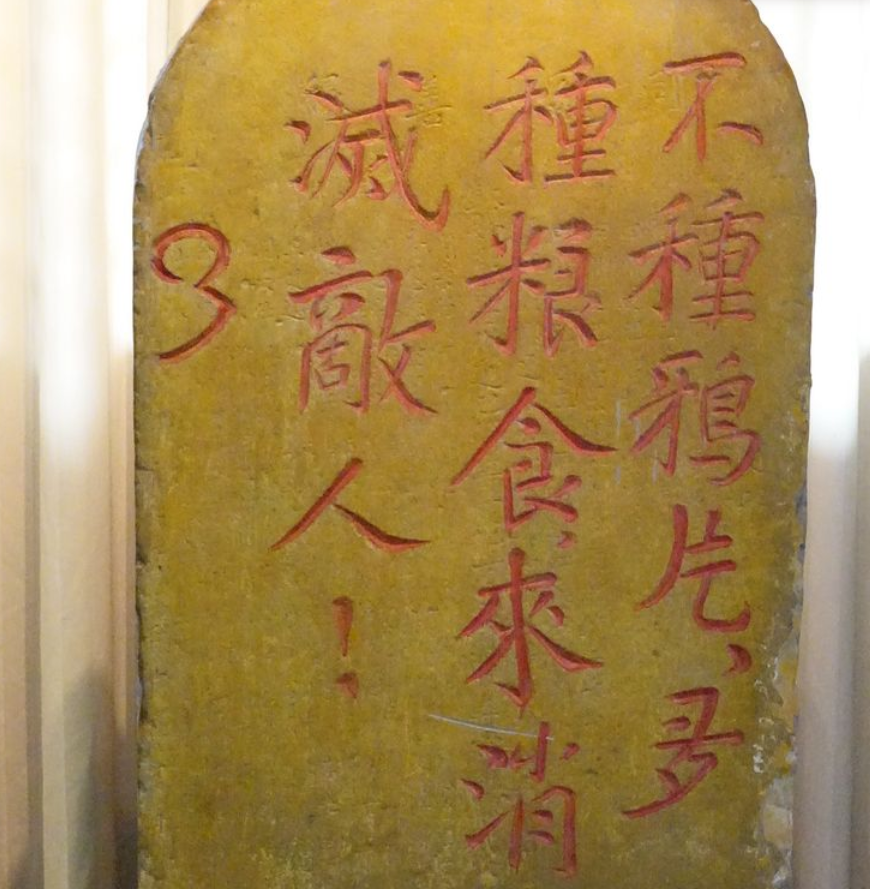 不種鴉片、多
種粮食、來消
滅敵人！
3